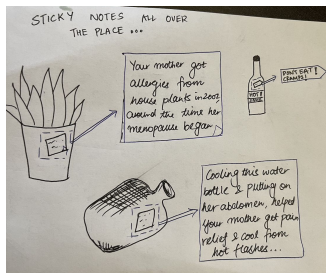 STICKY NOTES ALL OVER
THE PLACE ...
Your mother got
allergies from
house plants in 2002
around the time her
menopause began.
DON'T EAT!
CRAMPS!
HOT
Cooling this water
bottle & putting on
her abdomen, helped
your mother get pain
relief & cool from
hot flashes...